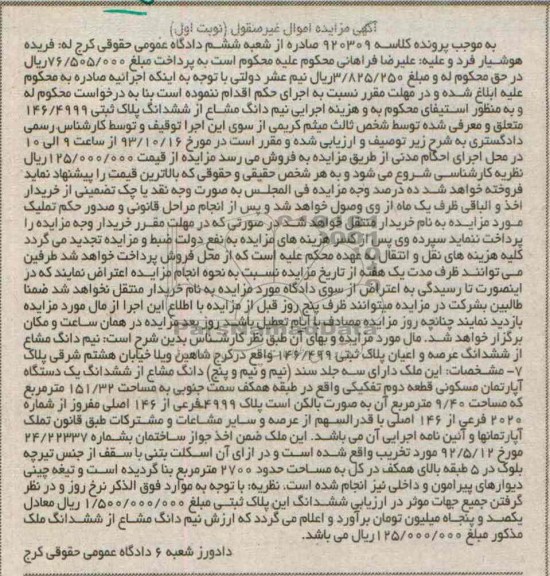 آگهی مزایده اموال غیرمنقول (نوبت اول)
به موجب پرونده کلاسه ۹۲۰۳۰۹ صادره از شعبه ششم دادگاه عمومی حقوقی کرج له: فریده
هوشیار فرد و علیه: علیرضا فراهانی محکوم علیه محکوم است به پرداخت مبلغ ۷۶/۵۰۵/۰۰۰ریال
در حق محکوم له و مبلغ ۳/۸۲۵/۲۵۰ریال نیم عشر دولتی با توجه به اینکه اجرائیه صادره به محکوم
علیه ابلاغ شده و در مهلت مقرر نسبت به اجرای حکم اقدام ننموده است بنا به درخواست محکوم له
و به منظور استیفای محکوم به و هزینه اجرایی نیم دانگ مشاع از ششدانگ پلاک ثبتی ۱۴۶/۴۹۹۹
متعلق و معرفی شده توسط شخص ثالث میثم کریمی از سوی این اجرا توقیف و توسط کارشناس رسمی
دادگستری به شرح زیر توصیف و ارزیابی شده و مقرر است در مورخ ۹۳/۱۰/۱۶ از ساعت ۹ الی ۱۰
در محل اجرای احکام مدنی از طریق مزایده به فروش می رسد مزایده از قیمت ۱۲۵/۰۰۰/۰۰۰ریال
نظریه کارشناسی شروع می شود و به هر شخص حقیقی و حقوقی که بالاترین قیمت را پیشنهاد نماید
فروخته خواهد شد ده درصد وجه مزایده فی المجلس به صورت وجه نقد یا چک تضمینی از خریدار
اخذ و الباقی ظرف یک ماه از وی وصول خواهد شد و پس از انجام مراحل قانونی و صدور حکم تملیک
مورد مزایده به نام خریدار منتقل خواهد شد در صورتی که در مهلت مقرر خریدار وجه مزایده را
پرداخت ننماید سپرده وی پس از کسر هزینه های مزایده به نفع دولت ضبط و مزایده تجدید می گردد
کلیه هزینه های نقل و انتقال به عهده محکوم علیه است که از محل فروش پرداخت خواهد شد طرفین
می توانند ظرف مدت یک هفته از تاریخ مزایده نسبت به نحوه انجام مزایده اعتراض نمایند که در
اینصورت تا رسیدگی به اعتراض از سوی دادگاه مورد مزایده به نام خریدار منتقل نخواهد شد ضمنا
طالبین بشرکت در مزایده میتوانند ظرف پنج روز قبل از مزایده با اطلاع این اجرا از مال مورد مزایده
بازدید نمایند چنانچه روز مزایده مصادف با ایام تعطیل باشد روز بعد مزایده در همان ساعت و مکان
برگزار خواهد شد. مال مورد مزایده و بهای آن طبق نظر کارشناس بدین شرح است: نیم دانگ مشاع
از ششدانگ عرصه و اعیان پلاک ثبتی ۱۴۶/۴۹۹ واقع در کرج شاهین ویلا خیابان هشتم شرقی پلاک
۷- مشخصات: این ملک دارای سه جلد سند (نیم و نیم و پنج) دانگ مشاع از ششدانگ یک دستگاه
آپارتمان مسکونی قطعه دوم تفکیکی واقع در طبقه همکف سمت جنوبی به مساحت ۱۵۱/۳۲ مترمربع
که مساحت ۹/۴۰ مترمربع آن به صورت بالکن است پلاک ۴۹۹۹فرعی از ۱۴۶ اصلی مفروز از شماره
۲۰۲۰ فرعی از ۱۴۶ اصلی با قدرالسهم از عرصه و سایر مشاعات و مشترکات طبق قانون تملک
آپارتمانها و آئین نامه اجرایی آن می باشد. این ملک ضمن اخذ جواز ساختمان بشماره ۲۴/۲۲۳۳۷
مورخ ۹۲/۵/۱۲ مورد تخریب واقع شده است و در ازای آن اسکلت بتنی با سقف از جنس تیرچه
بلوک در ۵ طبقه بالای همکف در کل به مساحت حدود ۲۷۰۰ مترمربع بنا گردیده است و تیغه چینی
دیوارهای پیرامون و داخلی نیز انجام شده است. نظریه: با توجه به موارد فوق الذکر نرخ روز و در نظر
گرفتن جمیع جهات موثر در ارزیابی ششدانگ این پلاک ثبتی مبلغ ۱/۵۰۰/۰۰۰/۰۰۰ ریال معادل
یکصد و پنجاه میلیون تومان برآورد و اعلام می گردد که ارزش نیم دانگ مشاع از ششدانگ ملک
مذکور مبلغ ۱۲۵/۰۰۰/۰۰۰ریال می باشد.
دادورز شعبه ۶ دادگاه عمومی حقوقی کرج